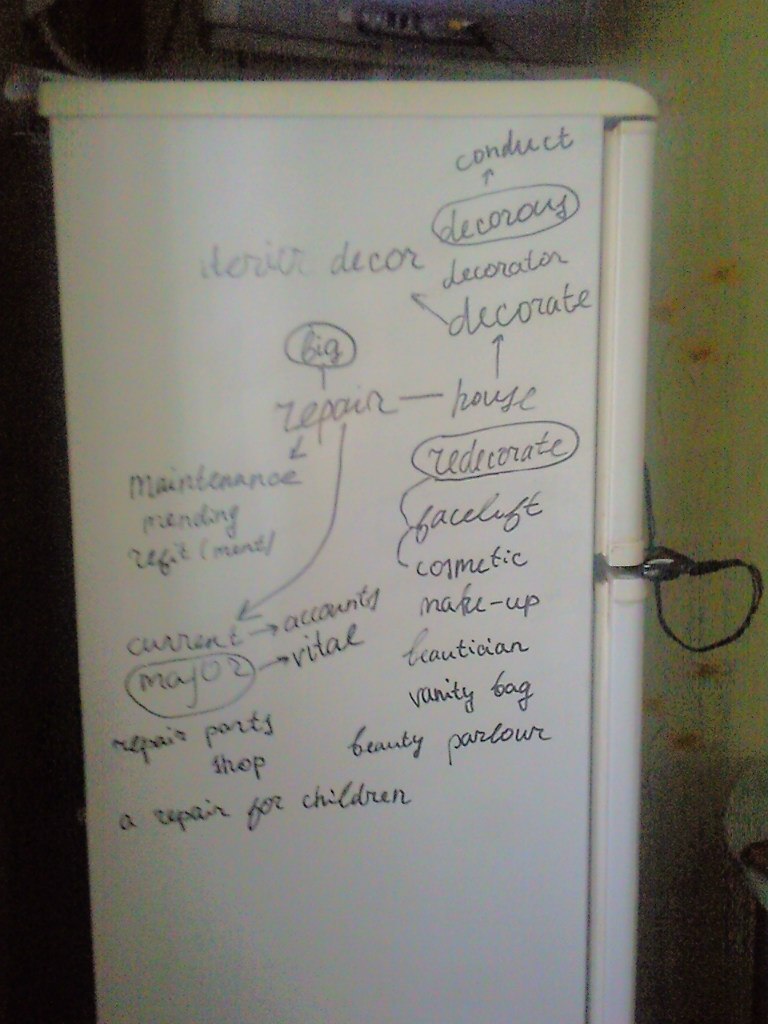 conduct
decorous
decor
decorator
decorate
big
repair — house
redecorate
maintenance
mending
refit (ment)
facelift
cosmetic
make-up
current → accounts
major → vital
beautician
vanity bag
repair parts
shop
beauty parlour
a repair for children